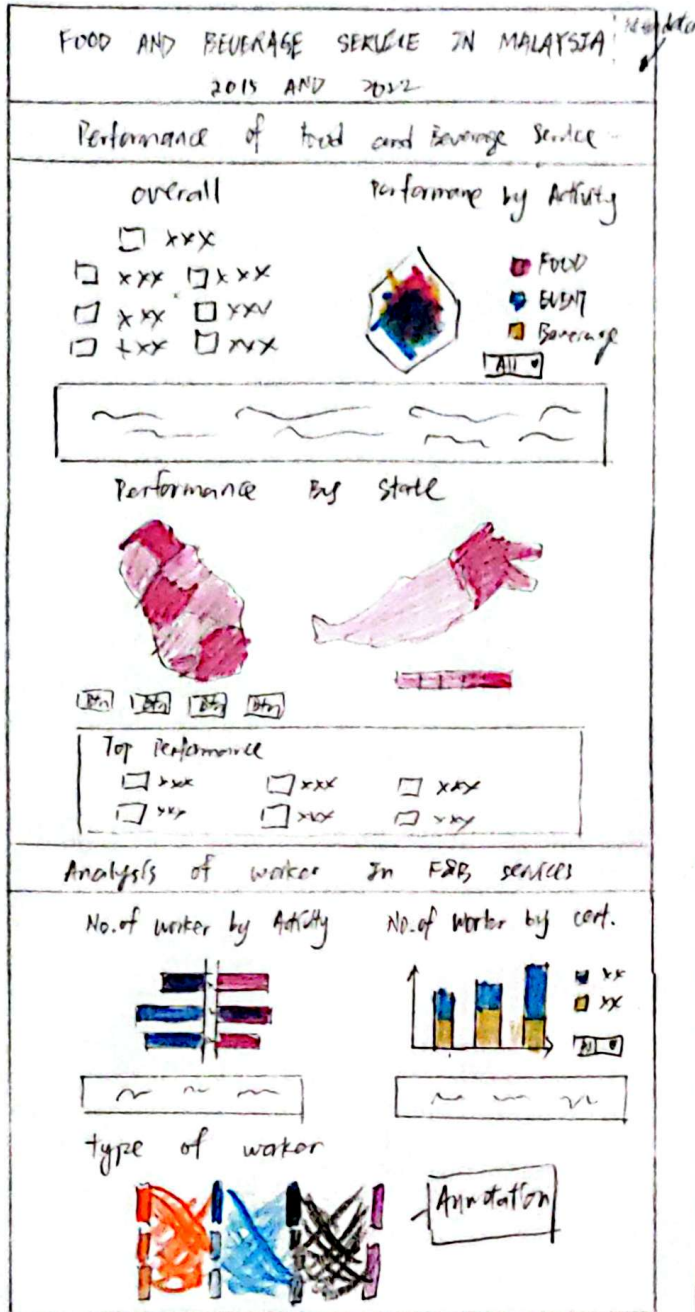 FOOD AND BEVERAGE SERVICE IN MALAYSIA
2015 AND 2022
Performance of Food and Beverage Service
overall
Performane by Activity
xxx
xxx xxx
xxx xxx
xxx xxx
FOOD
EVENT
Beverage
All
Performance By State
Btn Btn Btn Btn
Top Performance
xxx xxx xxx
xxx xxx xxx
Analysis of worker In F&B services
No. of worker by Activity
No. of worker by cert.
xx
xx
type of worker
Annotation